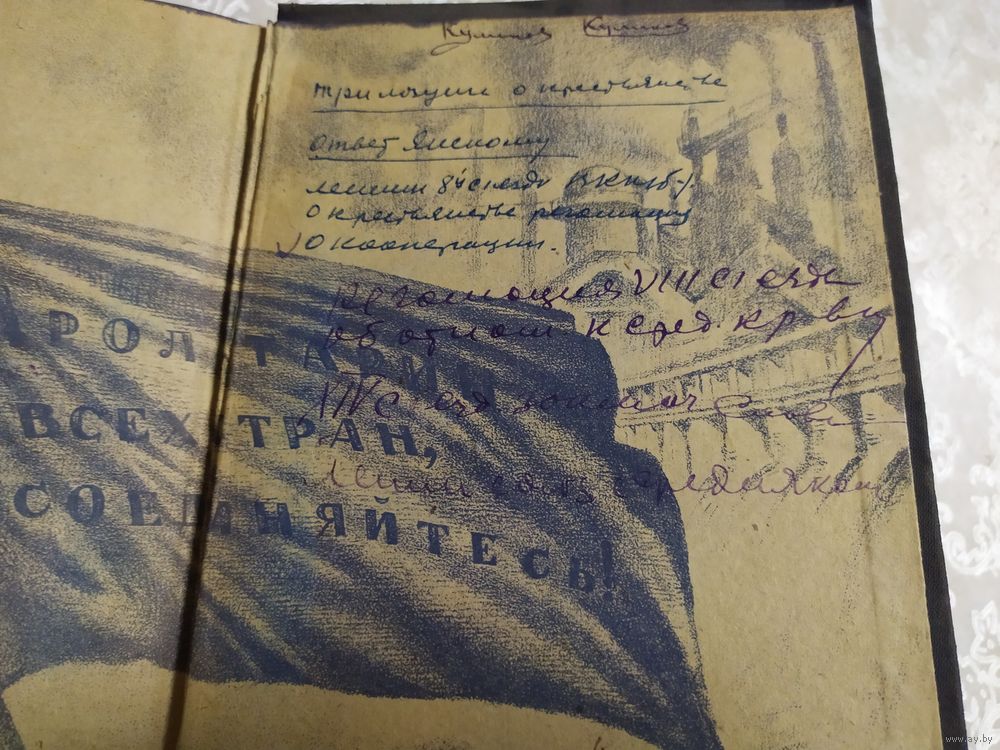 Куликов Куликов
три лозунги о крестьянстве
ответ Янскому
ленин 8й съезд ВКП(б)
о крестьянстве резолюция
О кооперации.
Резолюция VIII съезда
об отнош к сред. кр-ву
съезд
Ленин союз с середняком
АРОЛ ТАРИИ
ВСЕХ ТРАН,
СОЕДИНЯЙТЕСЬ!
www.ay.by